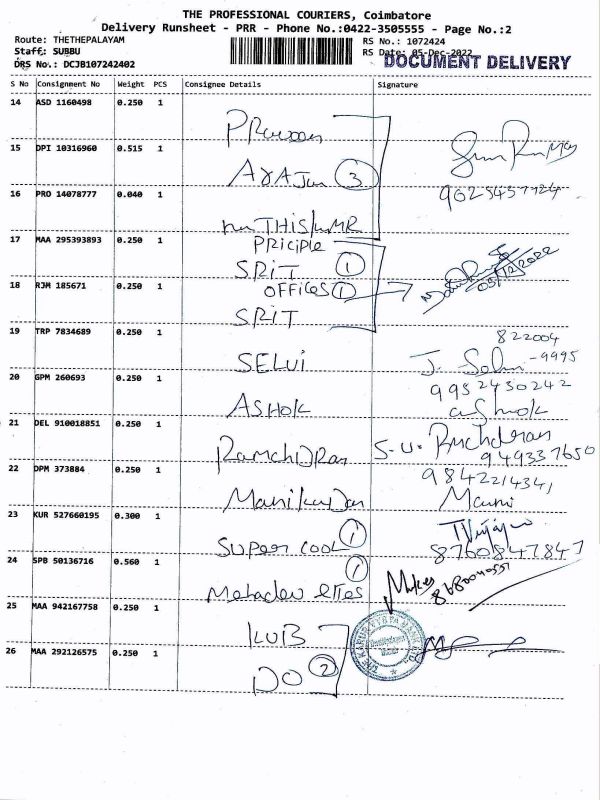 THE PROFESSIONAL COURIERS, Coimbatore
Delivery Runsheet - PRR - Phone No.:0422-3505555 - Page No.:2
Route: THETHEPALAYAM
Staff: SUBBU
DRS No.: DCJB107242402
RS No.: 1072424
RS Date: 05-Dec-2022
DOCUMENT DELIVERY
S No Consignment No Weight PCS Consignee Details Signature
14 ASD 1160498 0.250 1
15 DPI 10316960 0.515 1 3
16 PRO 14078777 0.040 1
17 MAA 295393893 0.250 1 PRICIPLE
SRIT 1
18 RJM 185671 0.250 1 OFFICES 1 05/12/2022
SRIT
19 TRP 7834689 0.250 1 822004
SELVI -9995
20 GPM 260693 0.250 1 9952430242
ASHOK ashok
21 DEL 910018851 0.250 1
949337650
22 DPM 373884 0.250 1 9842214341
Mani
23 KUR 527660195 0.300 1
SUPER COOL 1 8760847847
24 SPB 50136716 0.560 1 1
25 MAA 942167758 0.250 1
KVB THE KARUR VYSYA BANK LTD.
26 MAA 292126575 0.250 1
DO 2